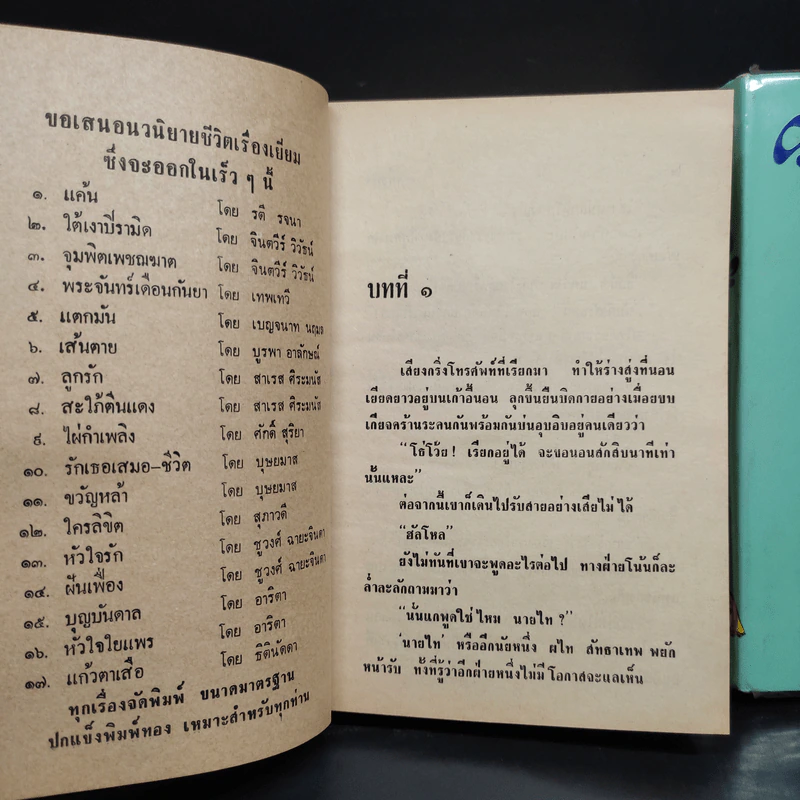 ขอเสนอนวนิยายชีวิตเรื่องเยี่ยม
ซึ่งจะออกในเร็ว ๆ นี้
๑. แค้น โดย รตี รจนา
๒. ใต้เงาปิรามิด โดย จินตวีร์ วิวัธน์
๓. จุมพิตเพชฌฆาต โดย จินตวีร์ วิวัธน์
๔. พระจันทร์เดือนกันยา โดย เทพเทวี
๕. แตกมัน โดย เบญจนาท นฤมล
๖. เส้นตาย โดย บูรพา อาลักษณ์
๗. ลูกรัก โดย สาเรส ศิระมนัส
๘. สะใภ้ตีนแดง โดย สาเรส ศิระมนัส
๙. ไผ่กำเพลิง โดย ศักดิ์ สุริยา
๑๐. รักเธอเสมอ-ชีวิต โดย บุษยมาส
๑๑. ขวัญหล้า โดย บุษยมาส
๑๒. ใครลิขิต โดย สุภาวดี
๑๓. หัวใจรัก โดย ชูวงศ์ ฉายะจินดา
๑๔. ฝันเฟื่อง โดย ชูวงศ์ ฉายะจินดา
๑๕. บุญบันดาล โดย อาริตา
๑๖. หัวใจใยแพร โดย อาริตา
๑๗. แก้วตาเสือ โดย ธิตินัดดา
ทุกเรื่องจัดพิมพ์ ขนาดมาตรฐาน
ปกแข็งพิมพ์ทอง เหมาะสำหรับทุกท่าน
บทที่ ๑
เสียงกริ่งโทรศัพท์ที่เรียกมา ทำให้ร่างสูงที่นอน
เยียดยาวอยู่บนเก้าอี้นอน ลุกขึ้นยืนบิดกายอย่างเมื่อยขบ
เกียจคร้านระคนกันพร้อมกันบ่นอุบอิบอยู่คนเดียวว่า
“โธ่โว้ย ! เรียกอยู่ได้ จะขอนอนสักสิบนาทีเท่า
นั้นแหละ”
ต่อจากนี้เขาก็เดินไปรับสายอย่างเสียไม่ได้
“ฮัลโหล”
ยังไม่ทันที่เขาจะพูดอะไรต่อไป ทางฝ่ายโน้นก็ละ
ล่ำละลักถามมาว่า
“นั่นแกพูดใช่ไหม นายไท ?”
‘นายไท’ หรืออีกนัยหนึ่ง ผไท สัทธาเทพ พยัก
หน้ารับ ทั้งที่รู้ว่าอีกฝ่ายหนึ่งไม่มีโอกาสจะแลเห็น